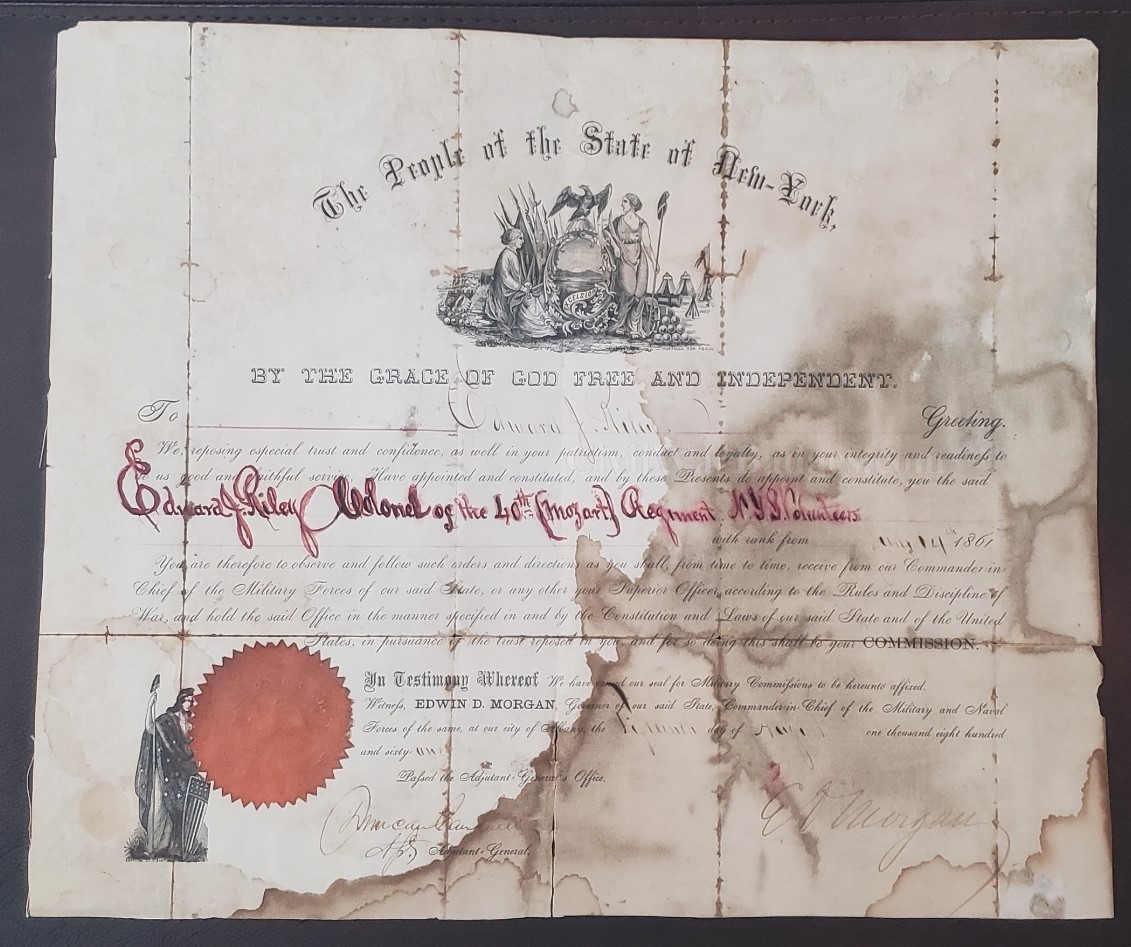 The People of the State of New-York,
EXCELSIOR
BY THE GRACE OF GOD FREE AND INDEPENDENT.
To Edward J. Riley Greeting.
We, reposing especial trust and confidence, as well in your patriotism, conduct and loyalty, as in your integrity and readiness to
us good and faithful service, Have appointed and constituted, and by these Presents do appoint and constitute, you the said
Edward J. Riley Colonel of the 40th (Mozart) Regiment N.Y.S. Volunteers.
with rank from 14th 1861
You are therefore to observe and follow such orders and directions as you shall, from time to time, receive from our Commander-in-
Chief of the Military Forces of our said State, or any other your Superior Officer, according to the Rules and Discipline of
War, and hold the said Office in the manner specified in and by the Constitution and Laws of our said State and of the United
States, in pursuance of the trust reposed in you, and for so doing this shall be your COMMISSION.
In Testimony Whereof We have caused our seal for Military Commissions to be hereunto affixed.
Witness, EDWIN D. MORGAN, Governor of our said State, Commander-in-Chief of the Military and Naval
Forces of the same, at our city of Albany, the day of one thousand eight hundred
and sixty-one
Passed the Adjutant-General's Office.
Duncan Campbell
E D Morgan
Asst Adjutant-General.